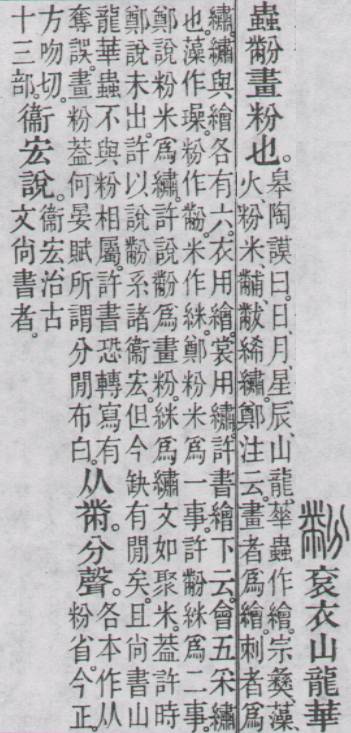 黺 袞衣山龍華
蟲黺畫粉也。
皋陶謨曰。日、月、星辰、山龍、華蟲作繪。宗彝、藻、
火、粉米、黼黻絺繡。鄭注云。畫者爲繪。刺者爲
繡。繡與繪各有六。衣用繪。裳用繡。許書繪下云。會五采繡
也。藻作璪。粉作黺。米作䋛。鄭粉米爲一事。許黺䋛爲二事。
鄭說粉米爲繡。許說黺爲畫粉。䋛爲繡文如聚米。葢許時
鄭說未出。許以說黺系諸衞宏。但今缺有閒矣。且尙書山
龍華蟲不與粉相屬。許書恐轉寫有
奪誤。畫粉葢何晏賦所謂分閒布白。
从黹。分聲。
各本作从
粉省。今正。
方吻切。
十三部。
衞宏說。
衞宏治古
文尙書者。